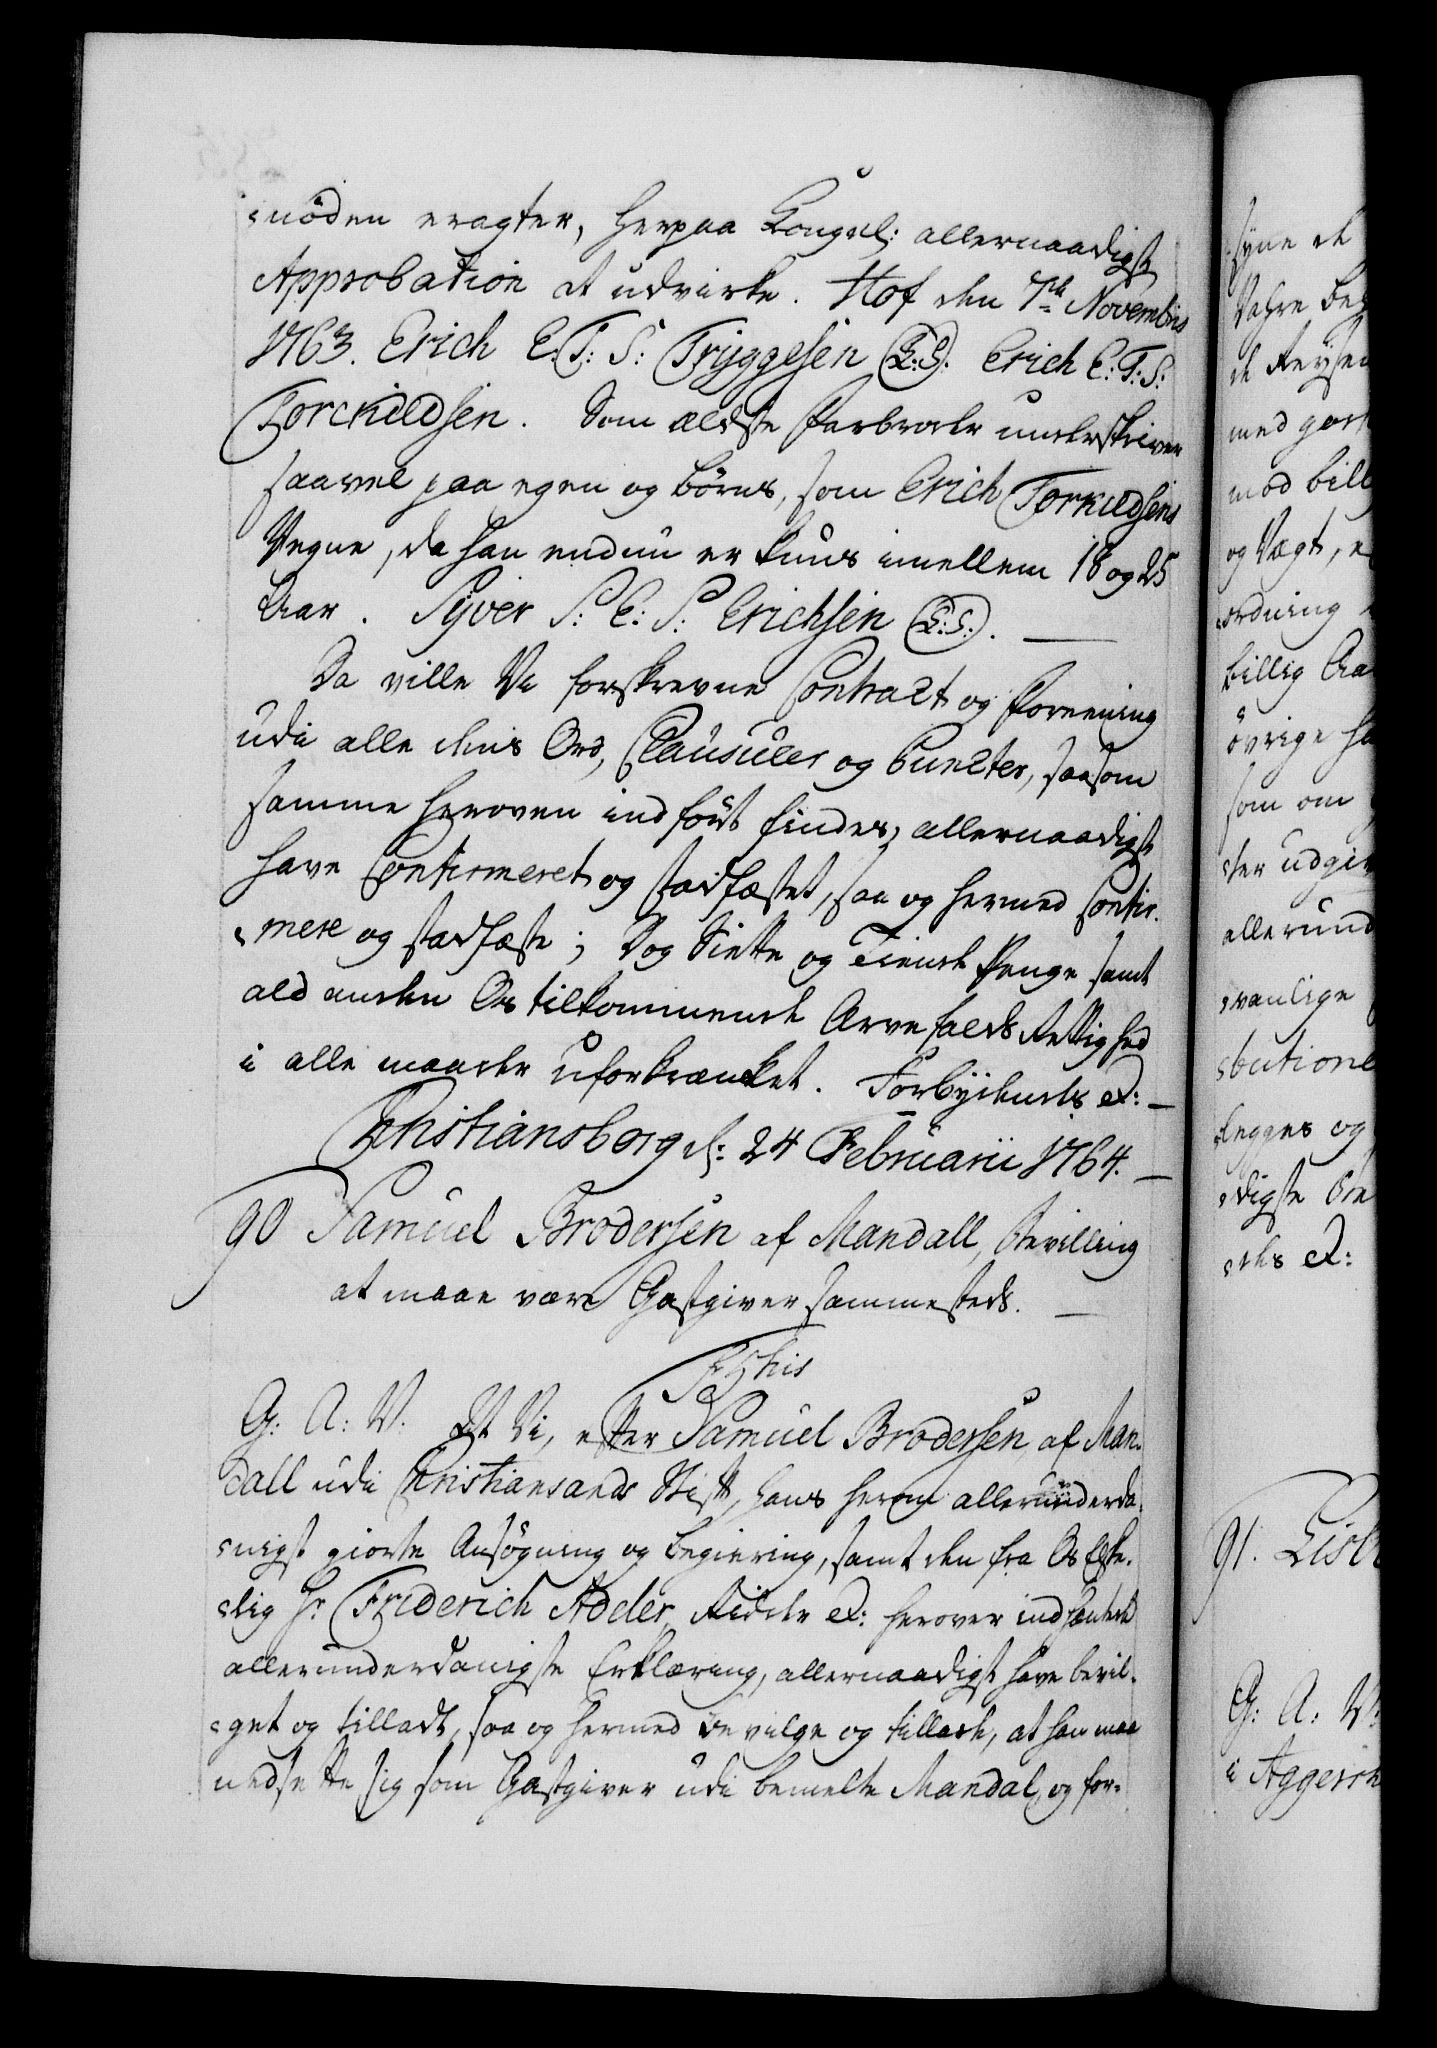 nöden eragter, herpaa Kongel: allernaadigst
Approbation at udvirke. Hof den 7de Novembris
1763. Erich E. T: S: Tryggesen (L:S). Erich E: T: S:
Torckildsen. Som ældste Farbroder underskriver
saavel paa egen og börns, som Erich Torkildsens
Vegne, da han endnu er kuns imellem 18 og 25
Aar. Syver S: E: S: Erichsen (L:S:).
Da ville Vi forskrevne Contract og Foreening
udi alle dens Ord, Clausuler og Puncter, saasom
samme heroven indfört findes, allernaadigst
have Confirmeret og stadfæstet, saa og hermed Confir-
mere og stadfæste; Dog Siette og Tiende Penge samt
ald anden Os tilkommende Arvefalds Rettighed
i alle maader uforkrænket. Forbydendes etc:
Christiansborg d: 24 Februarii 1764.
90 Samuel Brodersen af Mandall, Bevilling
at maae være Gastgiver sammesteds.
G: A: V. At Vi, efter Samuel Brodersen, af Man-
dall udi Christiansands Stift, hans herom allerunderda-
nigst giorte Ansögning og begiering, samt den fra Os Elske-
lig Hr Friderich Adeler, Ridder etc: herover indhentede
allerunderdanigste Erklæring, allernaadigst have bevil-
get og tilladt, saa og hermed bevilge og tillade, at han maa
nedsette sig som Gastgiver udi bemelte Mandal, og for-
syne de
de Reysen
med
og Vægt,
ordning
billig
övrige
som om
allerund
vanlige
og
digste
des etc:
91.
G: A: V:
i